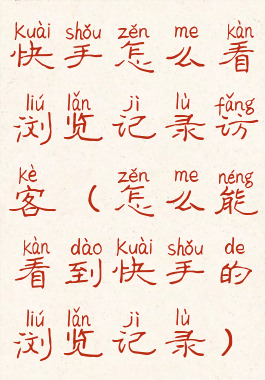 kuài shǒu zěn me kàn
快手怎么看
liú lǎn jì lù fǎng
浏览记录访
kè zěn me néng
客（怎么能
kàn dào kuài shǒu de
看到快手的
liú lǎn jì lù
浏览记录）